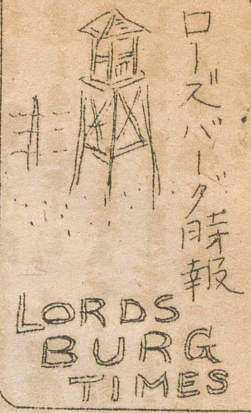 ローズバーグ時報
LORDS
BURG
TIMES